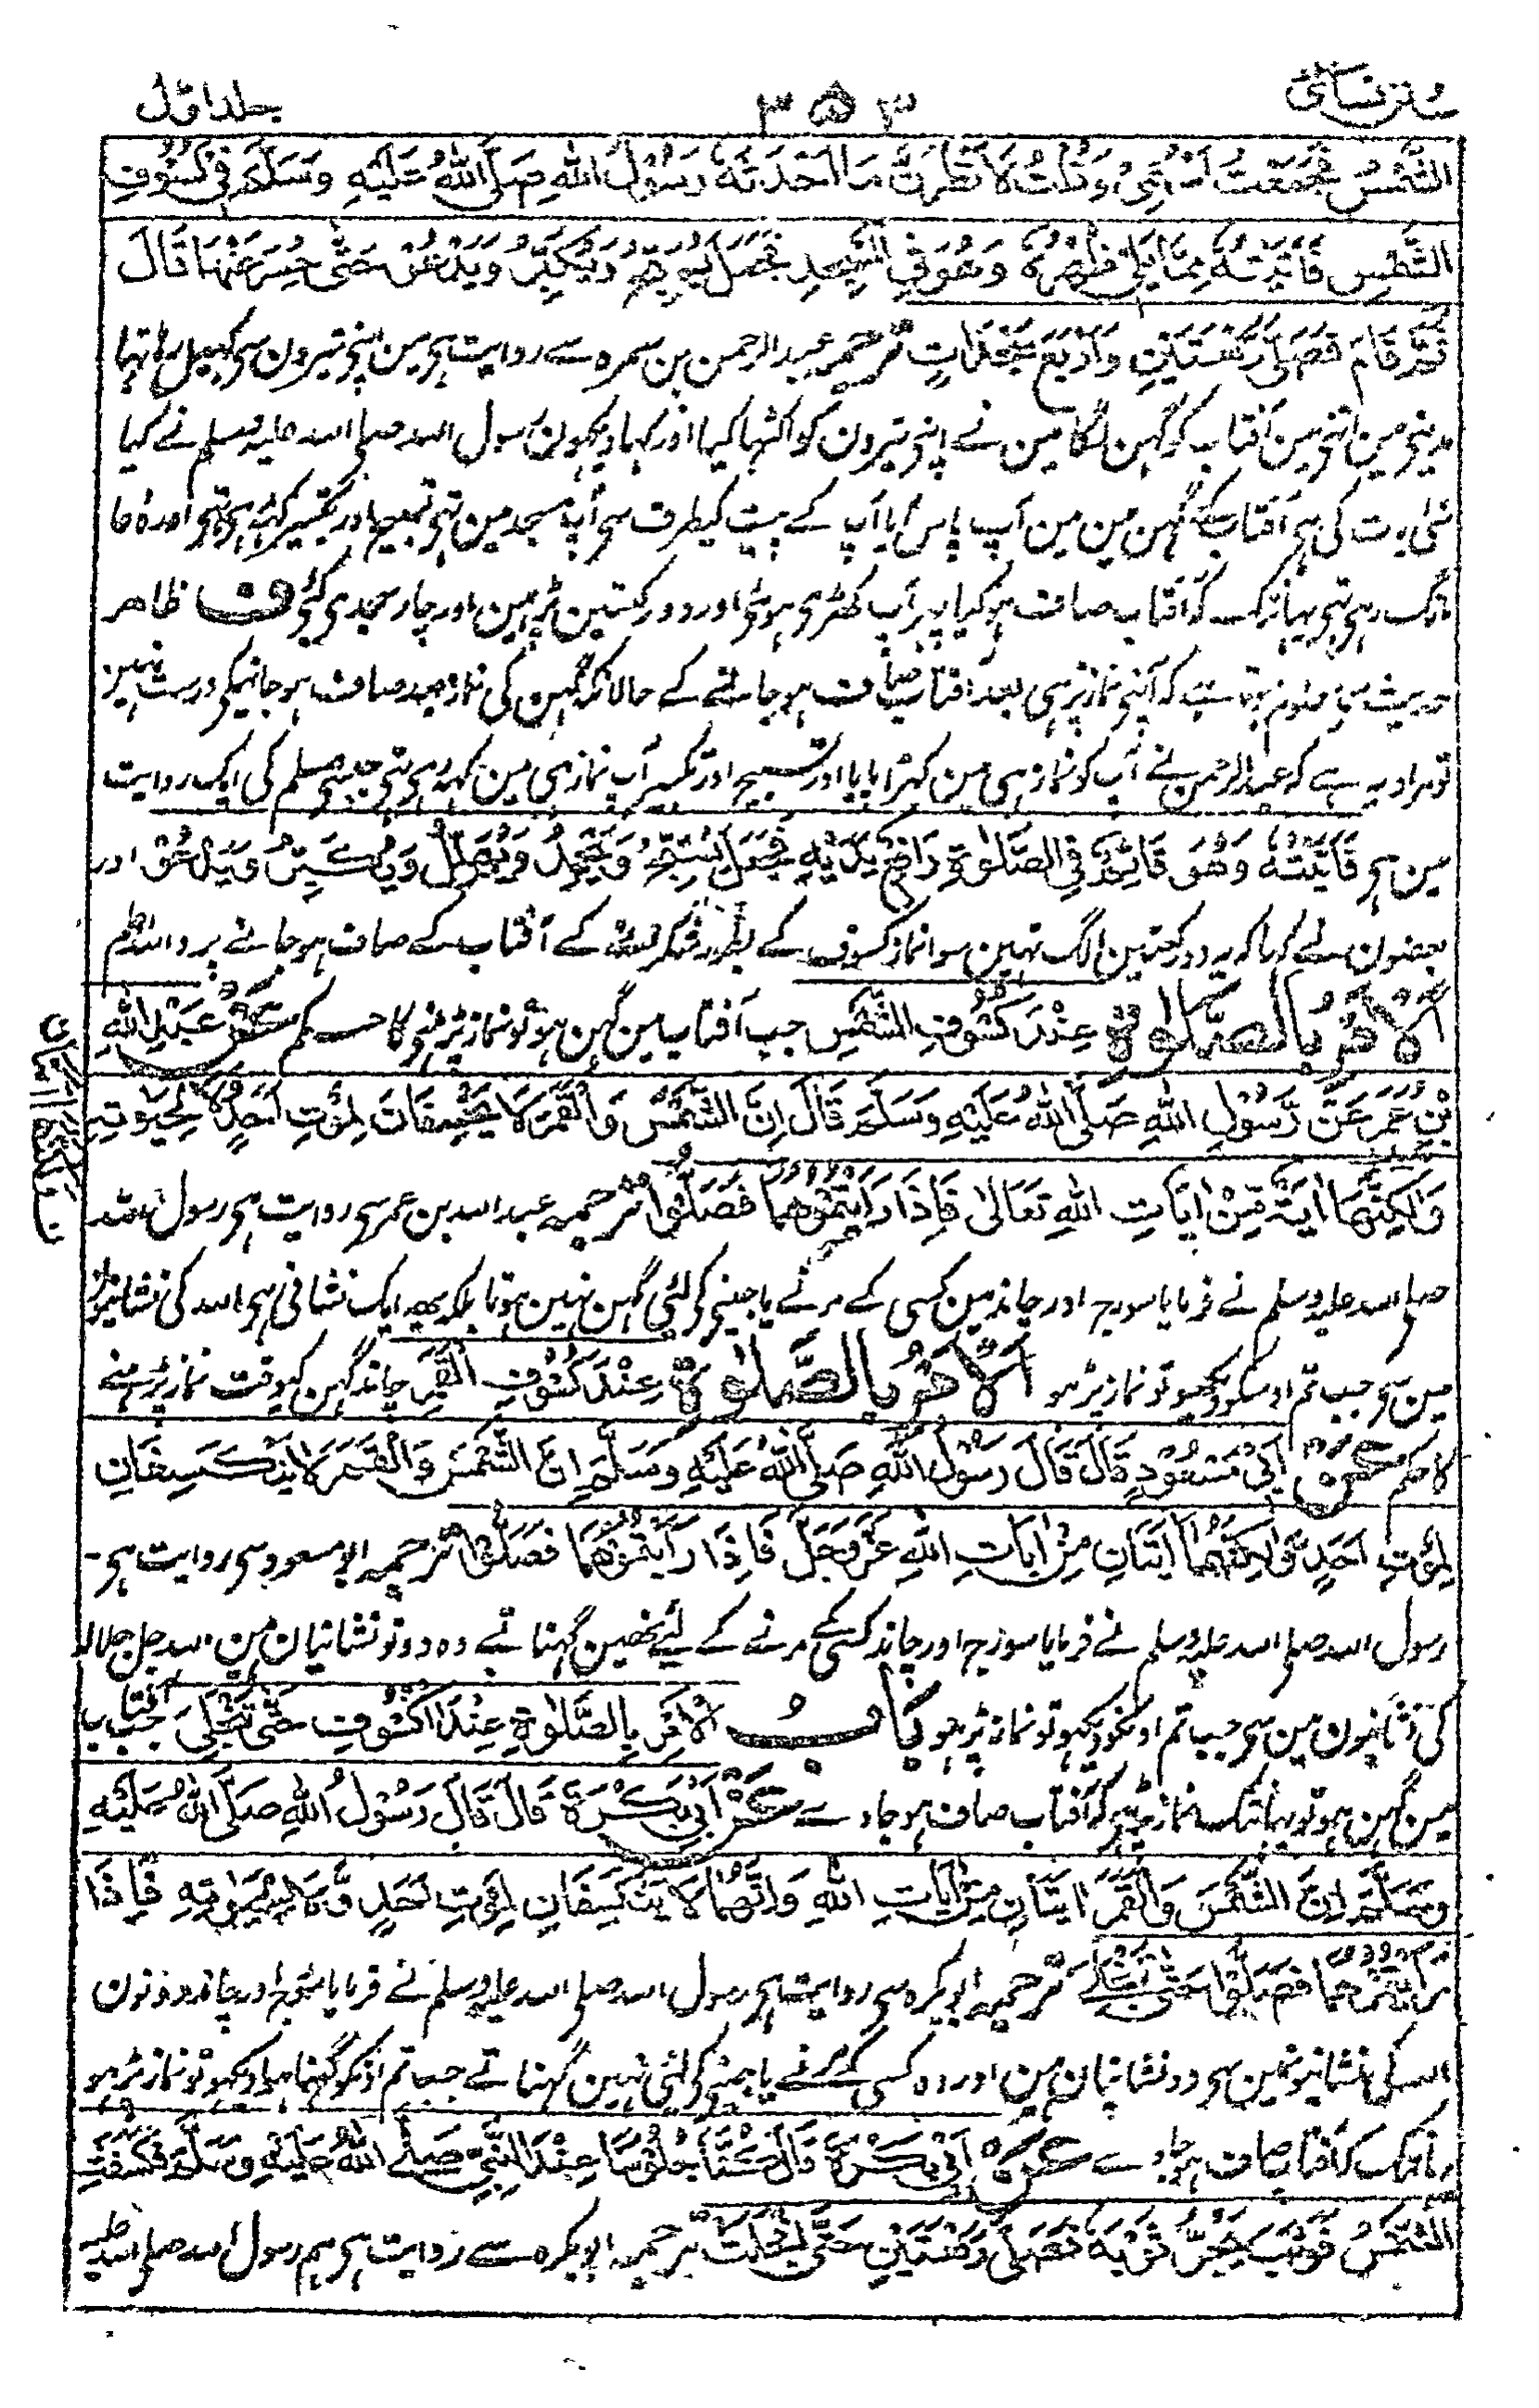 سنن نسائی
۳۵۳
جلد اول
الشَّمْسُ فَجَمَعْتُ أَسْهُمِي وَقُلْتُ لَأَنْظُرَنَّ مَا أَحْدَثَهُ رَسُوْلُ اللهِ صَلَّى اللهُ عَلَيْهِ وَسَلَّمَ فِي كُسُوْفِ
الشَّمْسِ فَأَتَيْتُهُ مِمَّا يَلِي ظَهْرَهُ وَهُوَ فِي الْمَسْجِدِ فَجَعَلَ يُسَبِّحُ وَيُكَبِّرُ وَيَدْعُوْ حَتَّى حُسِرَ عَنْهَا قَالَ
ثُمَّ قَامَ فَصَلَّى رَكْعَتَيْنِ وَأَرْبَعَ سَجَدَاتٍ ترجمہ عبدالرحمن بن سمرہ سے روایت ہی مین اپنی تیرون سی کہیل رہا تہا
مدینی مین اتنی مین آفتاب کو گہن لگا مین نے اپنی تیرون کو اکٹہا کیا اور کہا دیکہون رسول اللہ صلی اللہ علیہ وسلم نے کیا
نئی بات کی ہی آفتاب کے گہن مین مین آپ پاس آیا آپ کے پیٹ کیطرف سی آپ مسجد مین تہی تسبیح اور تکبیر کہہ رہی تہی اور دعا
مانگ رہی تہی یہانتک کہ آفتاب صاف ہو گیا پہر آپ کھڑی ہوئی اور دو رکعتین پڑہین اور چار سجدی کئی ف ظاہر
حدیث سے معلوم ہوتا ہے کہ آپنی نماز پڑہی بعد آفتاب صاف ہو جانے کے حالانکہ گہن کی نماز بعد صاف ہو جانیکی درست نہین
تو مراد یہ ہے کہ عبدالرحمن نے آپ کو نماز ہی مین کہڑا پایا اور تسبیح اور تکبیر آپ نماز ہی مین کہہ رہی تہی جیسی مسلم کی ایک روایت
مین ہی فَأَتَيْتُهُ وَهُوَ قَائِمٌ فِي الصَّلٰوةِ رَافِعٌ يَدَيْهِ فَجَعَلَ يُسَبِّحُ وَيَحْمَدُ وَيُهَلِّلُ وَيُكَبِّرُ وَيَدْعُوْ اور
بعضون نے کہا کہ یہ دو رکعتین الگ تہین سوا نماز کسوف کے بطور شکر کے آفتاب کے صاف ہو جانے پر واللہ اعلم
اَلْاَمْرُ بِالصَّلٰوةِ عِنْدَ كُسُوْفِ الشَّمْسِ جب آفتاب مین گہن ہو تو نماز پڑہنی کا حکم عَنْ عَبْدِ اللهِ
بْنِ عُمَرَ عَنْ رَسُوْلِ اللهِ صَلَّى اللهُ عَلَيْهِ وَسَلَّمَ قَالَ اِنَّ الشَّمْسَ وَالْقَمَرَ لَا يَخْسِفَانِ لِمَوْتِ اَحَدٍ وَلَا لِحَيٰوتِهِ
وَلٰكِنَّهُمَا اٰيَةٌ مِنْ اٰيَاتِ اللهِ تَعَالٰى فَاِذَا رَاَيْتُمُوْهُمَا فَصَلُّوْا ترجمہ عبد اللہ بن عمر سی روایت ہی رسول اللہ
صلی اللہ علیہ وسلم نے فرمایا سورج اور چاند مین کسی کے مرنے یا جینی کو لئی گہن نہین ہوتا بلکہ یہہ ایک نشانی ہی اللہ کی نشانیون
مین سی جب تم اوسکو دیکہیو تو نماز پڑہو اَلْاَمْرُ بِالصَّلٰوةِ عِنْدَ كُسُوْفِ الْقَمَرِ چاند گہن کیوقت نماز پڑہنے
کا حکم عَنْ اَبِيْ مَسْعُوْدٍ قَالَ قَالَ رَسُوْلُ اللهِ صَلَّى اللهُ عَلَيْهِ وَسَلَّمَ اِنَّ الشَّمْسَ وَالْقَمَرَ لَا يَنْكَسِفَانِ
لِمَوْتِ اَحَدٍ وَلٰكِنَّهُمَا اٰيَتَانِ مِنْ اٰيَاتِ اللهِ عَزَّ وَجَلَّ فَاِذَا رَاَيْتُمُوْهُمَا فَصَلُّوْا ترجمہ ابو مسعود سی روایت ہی۔
رسول اللہ صلی اللہ علیہ وسلم نے فرمایا سورج اور چاند کسی کے مرنے کے لئے نہین گہناتے وہ دونو نشانیان مین اللہ جل جلالہ
کی نشانیون مین سی جب تم اونکو دیکہو تو نماز پڑہو بَابُ الْاَمْرِ بِالصَّلٰوةِ عِنْدَ الْكُسُوْفِ حَتّٰى تَنْجَلِيَ جب آفتاب
مین گہن ہو تو یہانتک نماز پڑہی کہ آفتاب صاف ہو جاوے عَنْ اَبِيْ بَكْرَةَ قَالَ قَالَ رَسُوْلُ اللهِ صَلَّى اللهُ عَلَيْهِ
وَسَلَّمَ اِنَّ الشَّمْسَ وَالْقَمَرَ اٰيَتَانِ مِنْ اٰيَاتِ اللهِ وَاِنَّهُمَا لَا يَنْكَسِفَانِ لِمَوْتِ اَحَدٍ وَلَا لِحَيٰوتِهِ فَاِذَا
رَاَيْتُمُوْهُمَا فَصَلُّوْا حَتّٰى تَنْجَلِيَ ترجمہ ابو بکرہ سی روایت ہی رسول اللہ صلی اللہ علیہ وسلم نے فرمایا سورج اور چاند دونون
اللہ کی نشانیونمین سی دو نشانیان مین اور وہ کسی کے مرنے یا جینی کو لئی نہین گہناتے جب تم اونکو گہنا ہوا دیکہو تو نماز پڑہو
یہانتک کہ آفتاب صاف ہو جاوے عَنْ اَبِيْ بَكْرَةَ قَالَ كُنَّا جُلُوْسًا عِنْدَ النَّبِيِّ صَلَّى اللهُ عَلَيْهِ وَسَلَّمَ فَكَسَفَتِ
الشَّمْسُ فَوَثَبَ يَجُرُّ ثَوْبَهُ فَصَلّٰى رَكْعَتَيْنِ حَتّٰى انْجَلَتْ ترجمہ ابو بکرہ سے روایت ہی ہم رسول اللہ صلی اللہ علیہ